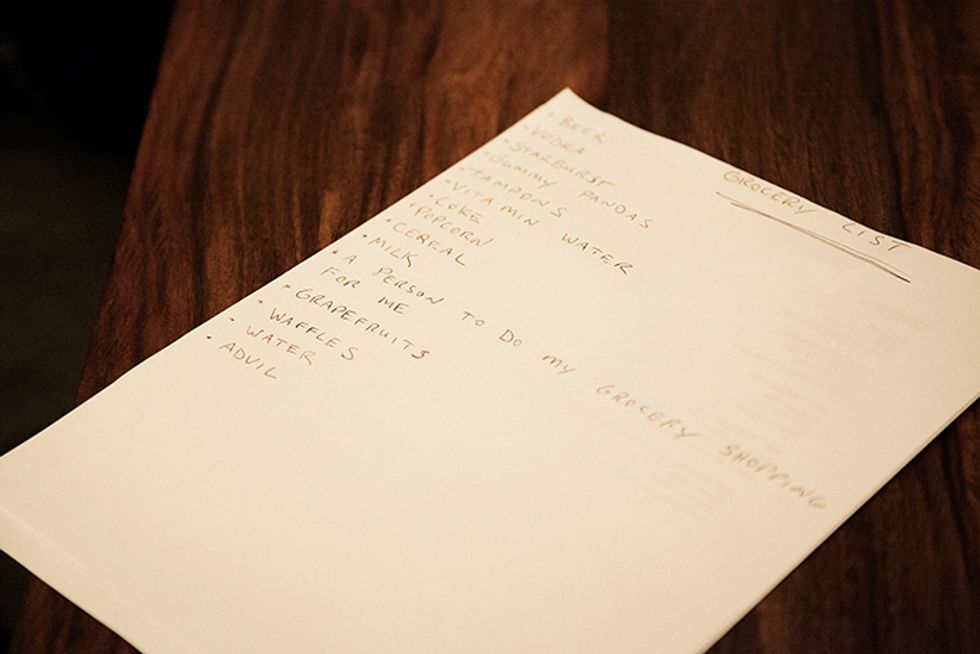 GROCERY LIST
• BEER
• VODKA
• STARBURST
• GUMMY PANDAS
• TAMPONS
• VITAMIN WATER
• COKE
• POPCORN
• CEREAL
• MILK
• A PERSON TO DO MY GROCERY SHOPPING
FOR ME
• GRAPEFRUITS
• WAFFLES
• WATER
• ADVIL